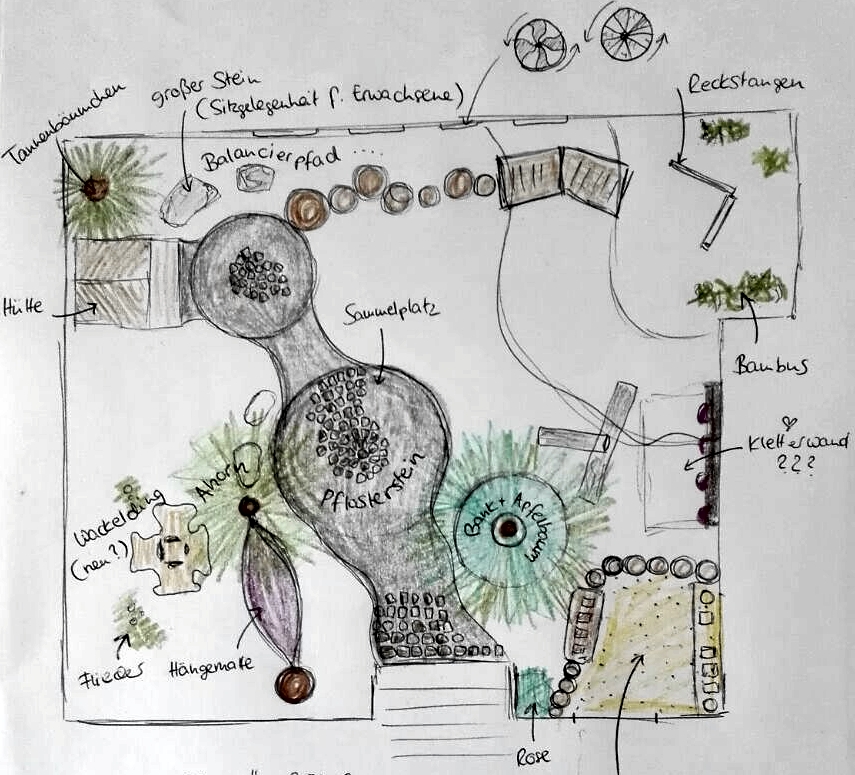 Reckstangen
großer Stein
(Sitzgelegenheit f. Erwachsene)
Tannenbäumchen
Balancierpfad ....
Hütte
Sammelplatz
Bambus
Kletterwand
???
Pflasterstein
Ahorn
Bank + Apfelbaum
Wackelding
(neu?)
Flieder
Hängematte
Rose